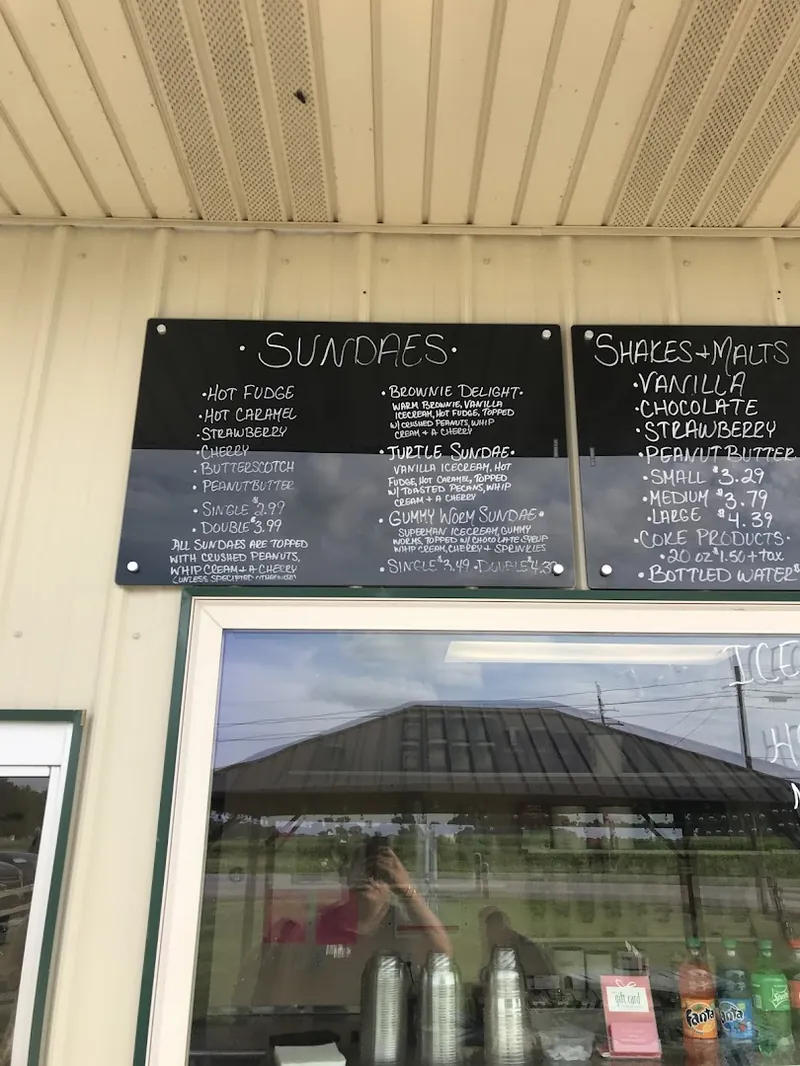 • SUNDAES •
• HOT FUDGE
• HOT CARAMEL
• STRAWBERRY
• CHERRY
• BUTTERSCOTCH
• PEANUT BUTTER
• SINGLE $2.99
• DOUBLE $3.99
ALL SUNDAES ARE TOPPED
WITH CRUSHED PEANUTS,
WHIP CREAM + A CHERRY
(UNLESS SPECIFIED OTHERWISE)
• BROWNIE DELIGHT •
WARM BROWNIE, VANILLA
ICECREAM, HOT FUDGE, TOPPED
W/ CRUSHED PEANUTS, WHIP
CREAM + A CHERRY
• TURTLE SUNDAE •
VANILLA ICECREAM, HOT
FUDGE, HOT CARAMEL, TOPPED
W/ TOASTED PECANS, WHIP
CREAM + A CHERRY
• GUMMY WORM SUNDAE •
SUPERMAN ICECREAM, GUMMY
WORMS, TOPPED W/ CHOCOLATE SYRUP
WHIP CREAM, CHERRY + SPRINKLES
• SINGLE $3.49 • DOUBLE
SHAKES + MALTS
• VANILLA
• CHOCOLATE
• STRAWBERRY
• PEANUT BUTTER
• SMALL $3.29
• MEDIUM $3.79
• LARGE $4.39
• COKE PRODUCTS •
• 20 oz $1.50 + tax
• BOTTLED WATER $
ICE
gift card
Fanta
Fanta
Sprite